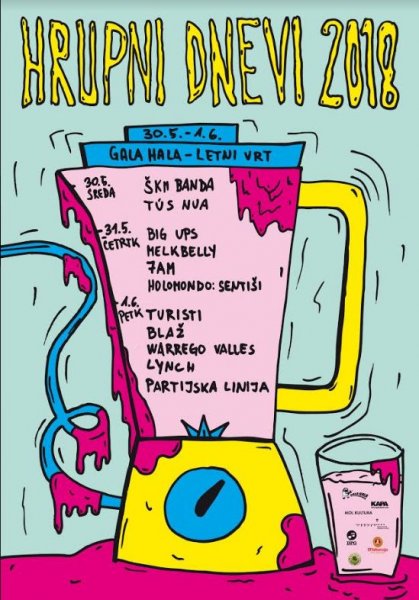 HRUPNI DNEVI 2018
30.5.-1.6.
GALA HALA - LETNI VRT
30.5. SREDA
ŠKM BANDA
TÚS NUA
31.5. ČETRTK
BIG UPS
MELKBELLY
7AM
HOLOMONDO: SENTIŠI
1.6. PETK
TURISTI
BLAŽ
WARREGO VALLES
LYNCH
PARTIJSKA LINIJA
KAPA
MOL KULTURA